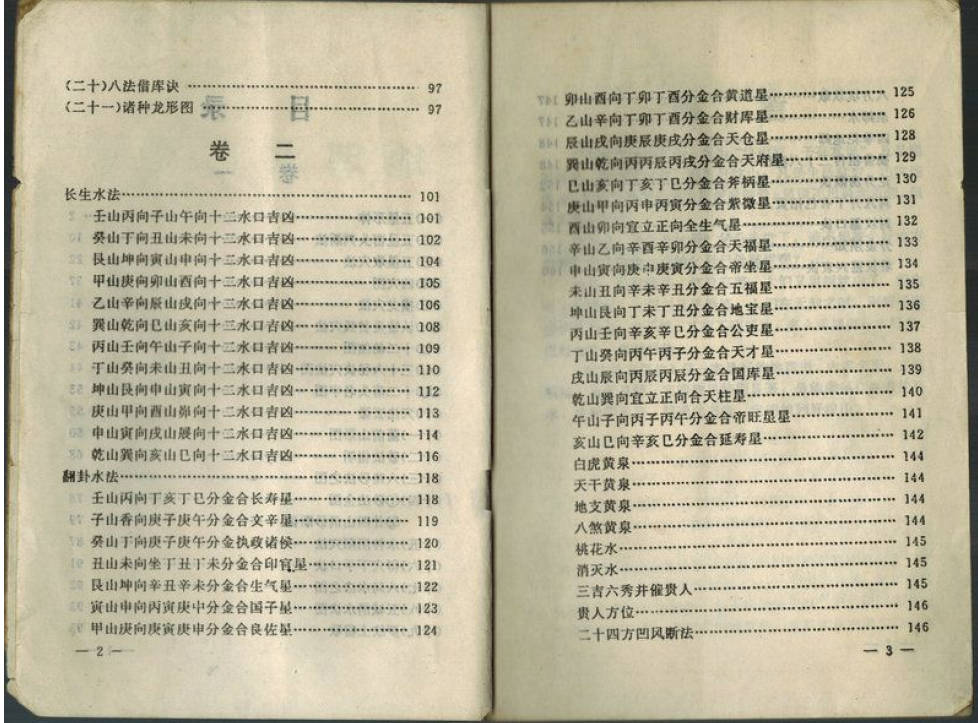 (二十)八法借库诀 …… 97
(二十一)诸种龙形图 …… 97
卷 二
长生水法 …… 101
壬山丙向子山午向十二水口吉凶 …… 101
癸山丁向丑山未向十二水口吉凶 …… 102
艮山坤向寅山申向十二水口吉凶 …… 104
甲山庚向卯山酉向十二水口吉凶 …… 105
乙山辛向辰山戌向十二水口吉凶 …… 106
巽山乾向巳山亥向十二水口吉凶 …… 108
丙山壬向午山子向十二水口吉凶 …… 109
丁山癸向未山丑向十二水口吉凶 …… 110
坤山艮向申山寅向十二水口吉凶 …… 112
庚山甲向酉山卯向十二水口吉凶 …… 113
申山寅向戌山辰向十二水口吉凶 …… 114
乾山巽向亥山巳向十二水口吉凶 …… 116
翻卦水法 …… 118
壬山丙向丁亥丁巳分金合长寿星 …… 118
子山香向庚子庚午分金合文辛星 …… 119
癸山丁向庚子庚午分金执政诸侯 …… 120
丑山未向坐丁丑丁未分金合印官星 …… 121
艮山坤向辛丑辛未分金合生气星 …… 122
寅山申向丙寅庚中分金合国子星 …… 123
甲山庚向庚寅庚申分金合良佐星 …… 124
— 2 —
卯山酉向丁卯丁酉分金合黄道星 …… 125
乙山辛向丁卯丁酉分金合财库星 …… 126
辰山戌向庚辰庚戌分金合天仓星 …… 128
巽山乾向丙丙辰丙戌分金合天府星 …… 129
巳山亥向丁亥丁巳分金合斧柄星 …… 130
庚山甲向丙申丙寅分金合紫微星 …… 131
酉山卯向宜立正向全生气星 …… 132
辛山乙向辛酉辛卯分金合天福星 …… 133
申山寅向庚申庚寅分金合帝坐星 …… 134
未山丑向辛未辛丑分金合五福星 …… 135
坤山艮向丁未丁丑分金合地宝星 …… 136
丙山壬向辛亥辛巳分金合公吏星 …… 137
丁山癸向丙午丙子分金合天才星 …… 138
戌山辰向丙辰丙辰分金合国库星 …… 139
乾山巽向宜立正向合天柱星 …… 140
午山子向丙子丙午分金合帝旺星星 …… 141
亥山巳向辛亥巳分金合延寿星 …… 142
白虎黄泉 …… 144
天干黄泉 …… 144
地支黄泉 …… 144
八煞黄泉 …… 144
桃花水 …… 145
消灭水 …… 145
三吉六秀并催贵人 …… 145
贵人方位 …… 146
二十四方凹风断法 …… 146
— 3 —